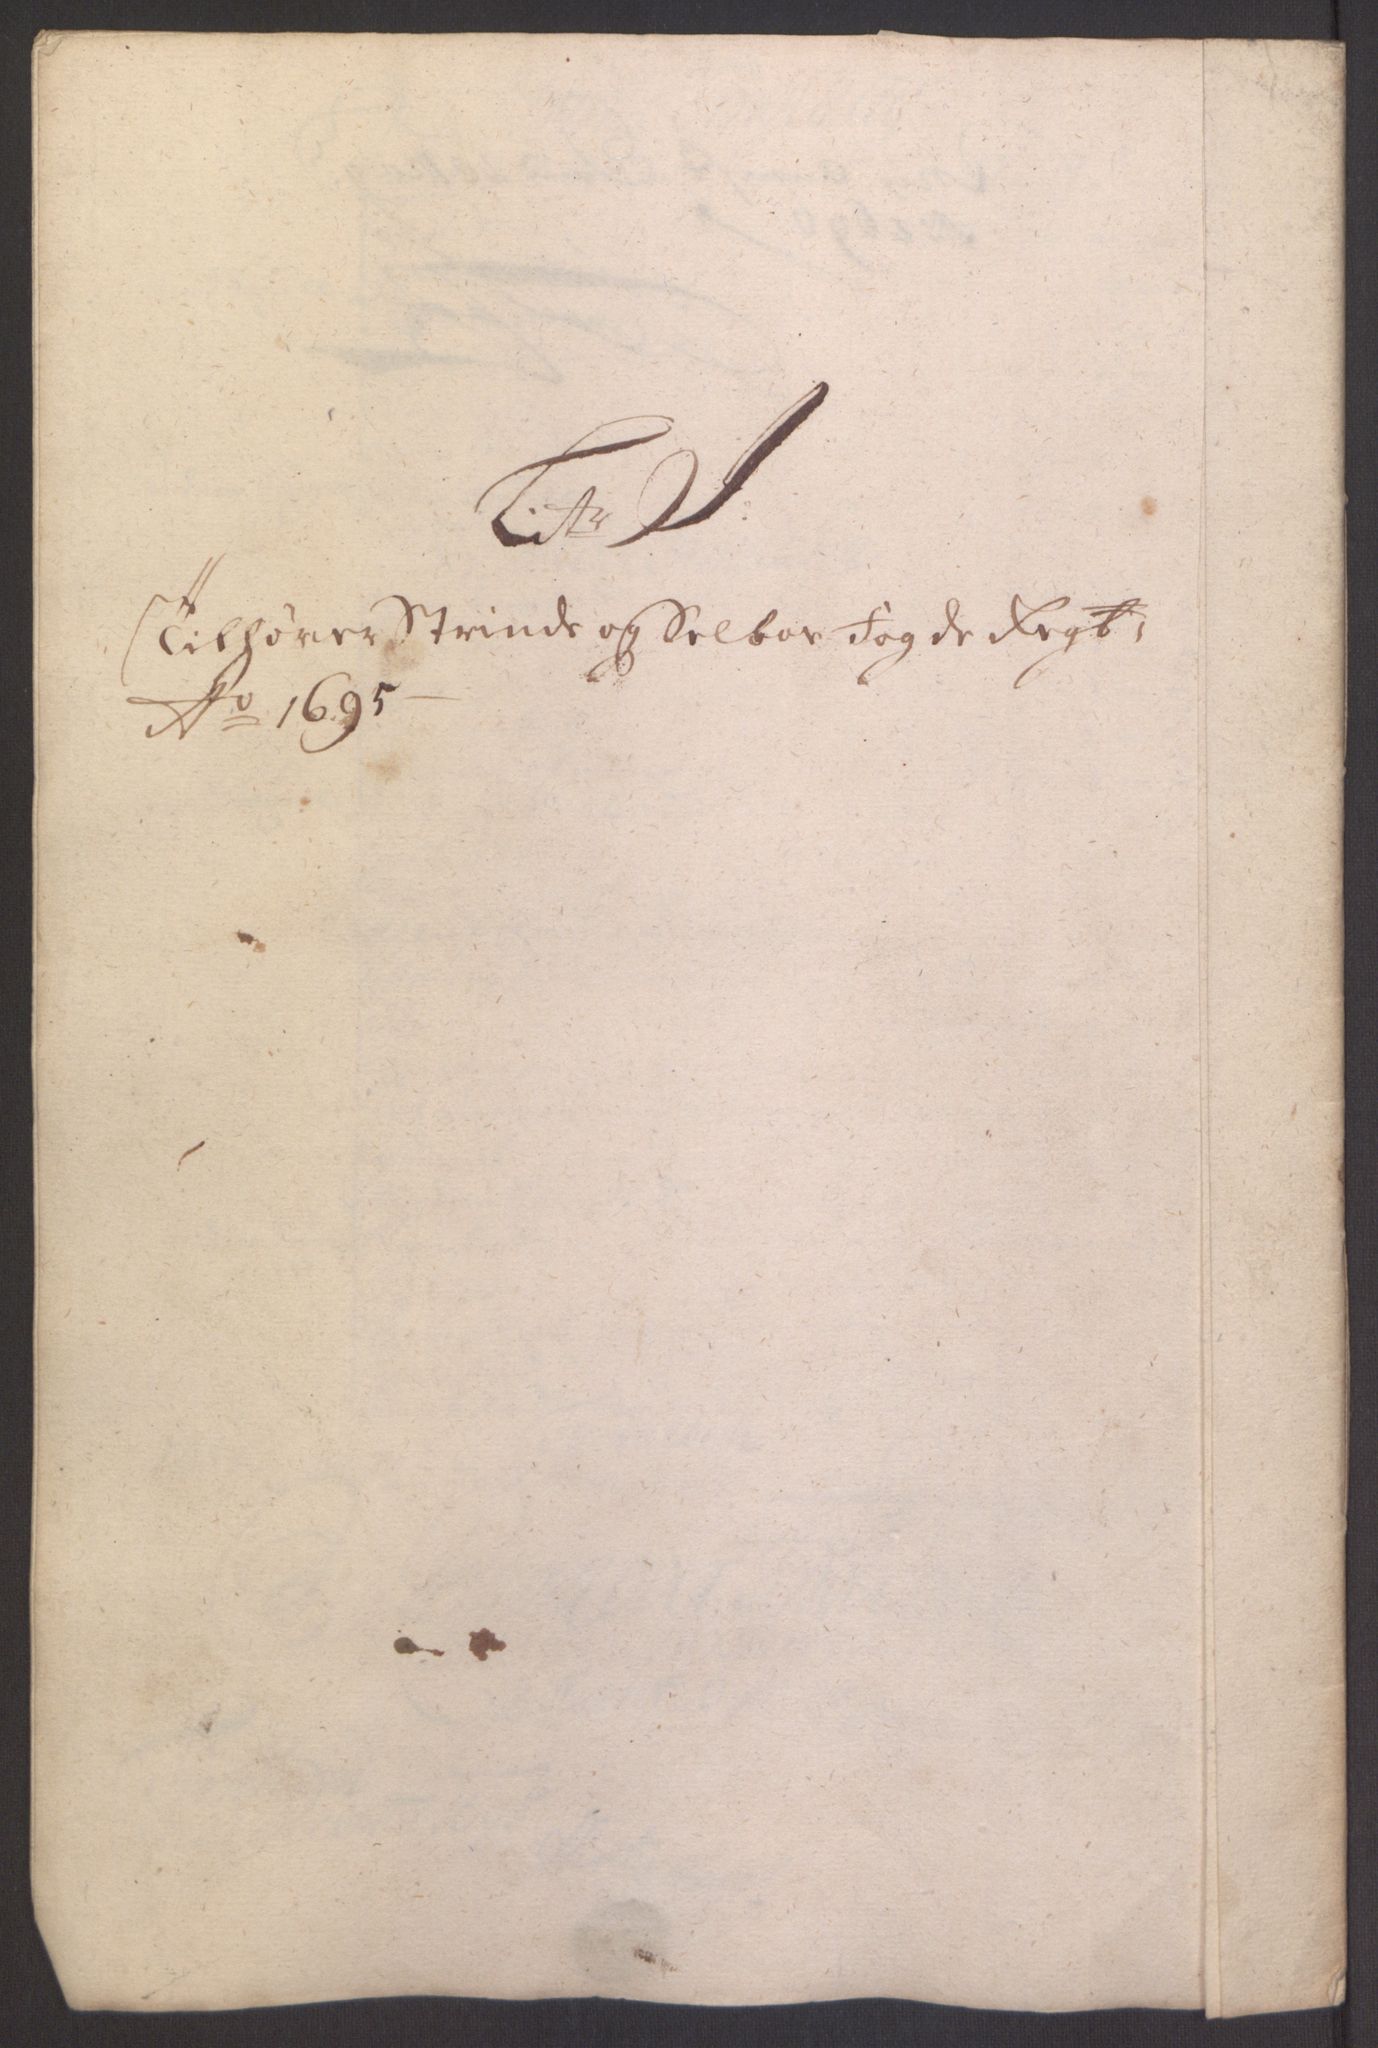 Litr S.
Tilhører Strinde og Selboe Fogde Regt:
Ao 1695